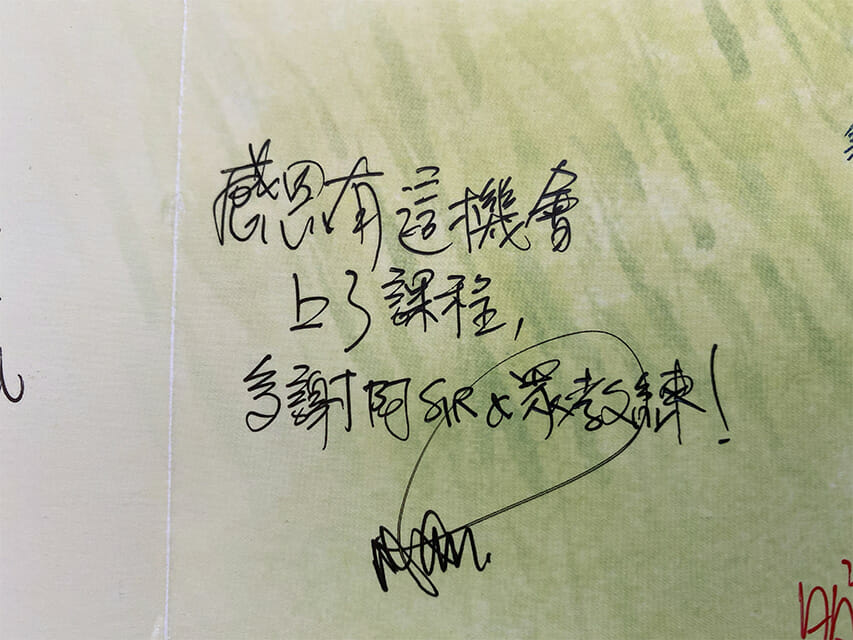 感恩有這機會
上了課程,
多謝阿SIR & 眾教練!